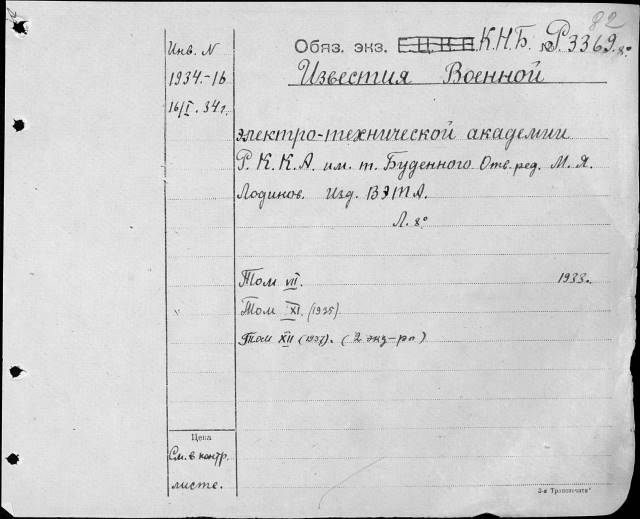 82
Инв. N
1934.-16
16/I. 34 г.
Обяз. экз. Е.Ц.К.П. К.Н.Б. № Р3369.8°
Известия Военной
электро-технической академии
Р. К. К. А. им. т. Буденного. Отв. ред. М. Я.
Лодинов. Изд. ВЭТА.
Л. 8°
Том VII. 1933.
Том XI. (1935)
Том XII (1937). (2 экз-ра)
Цена
См. в контр.
листе.
3-я Транспечать